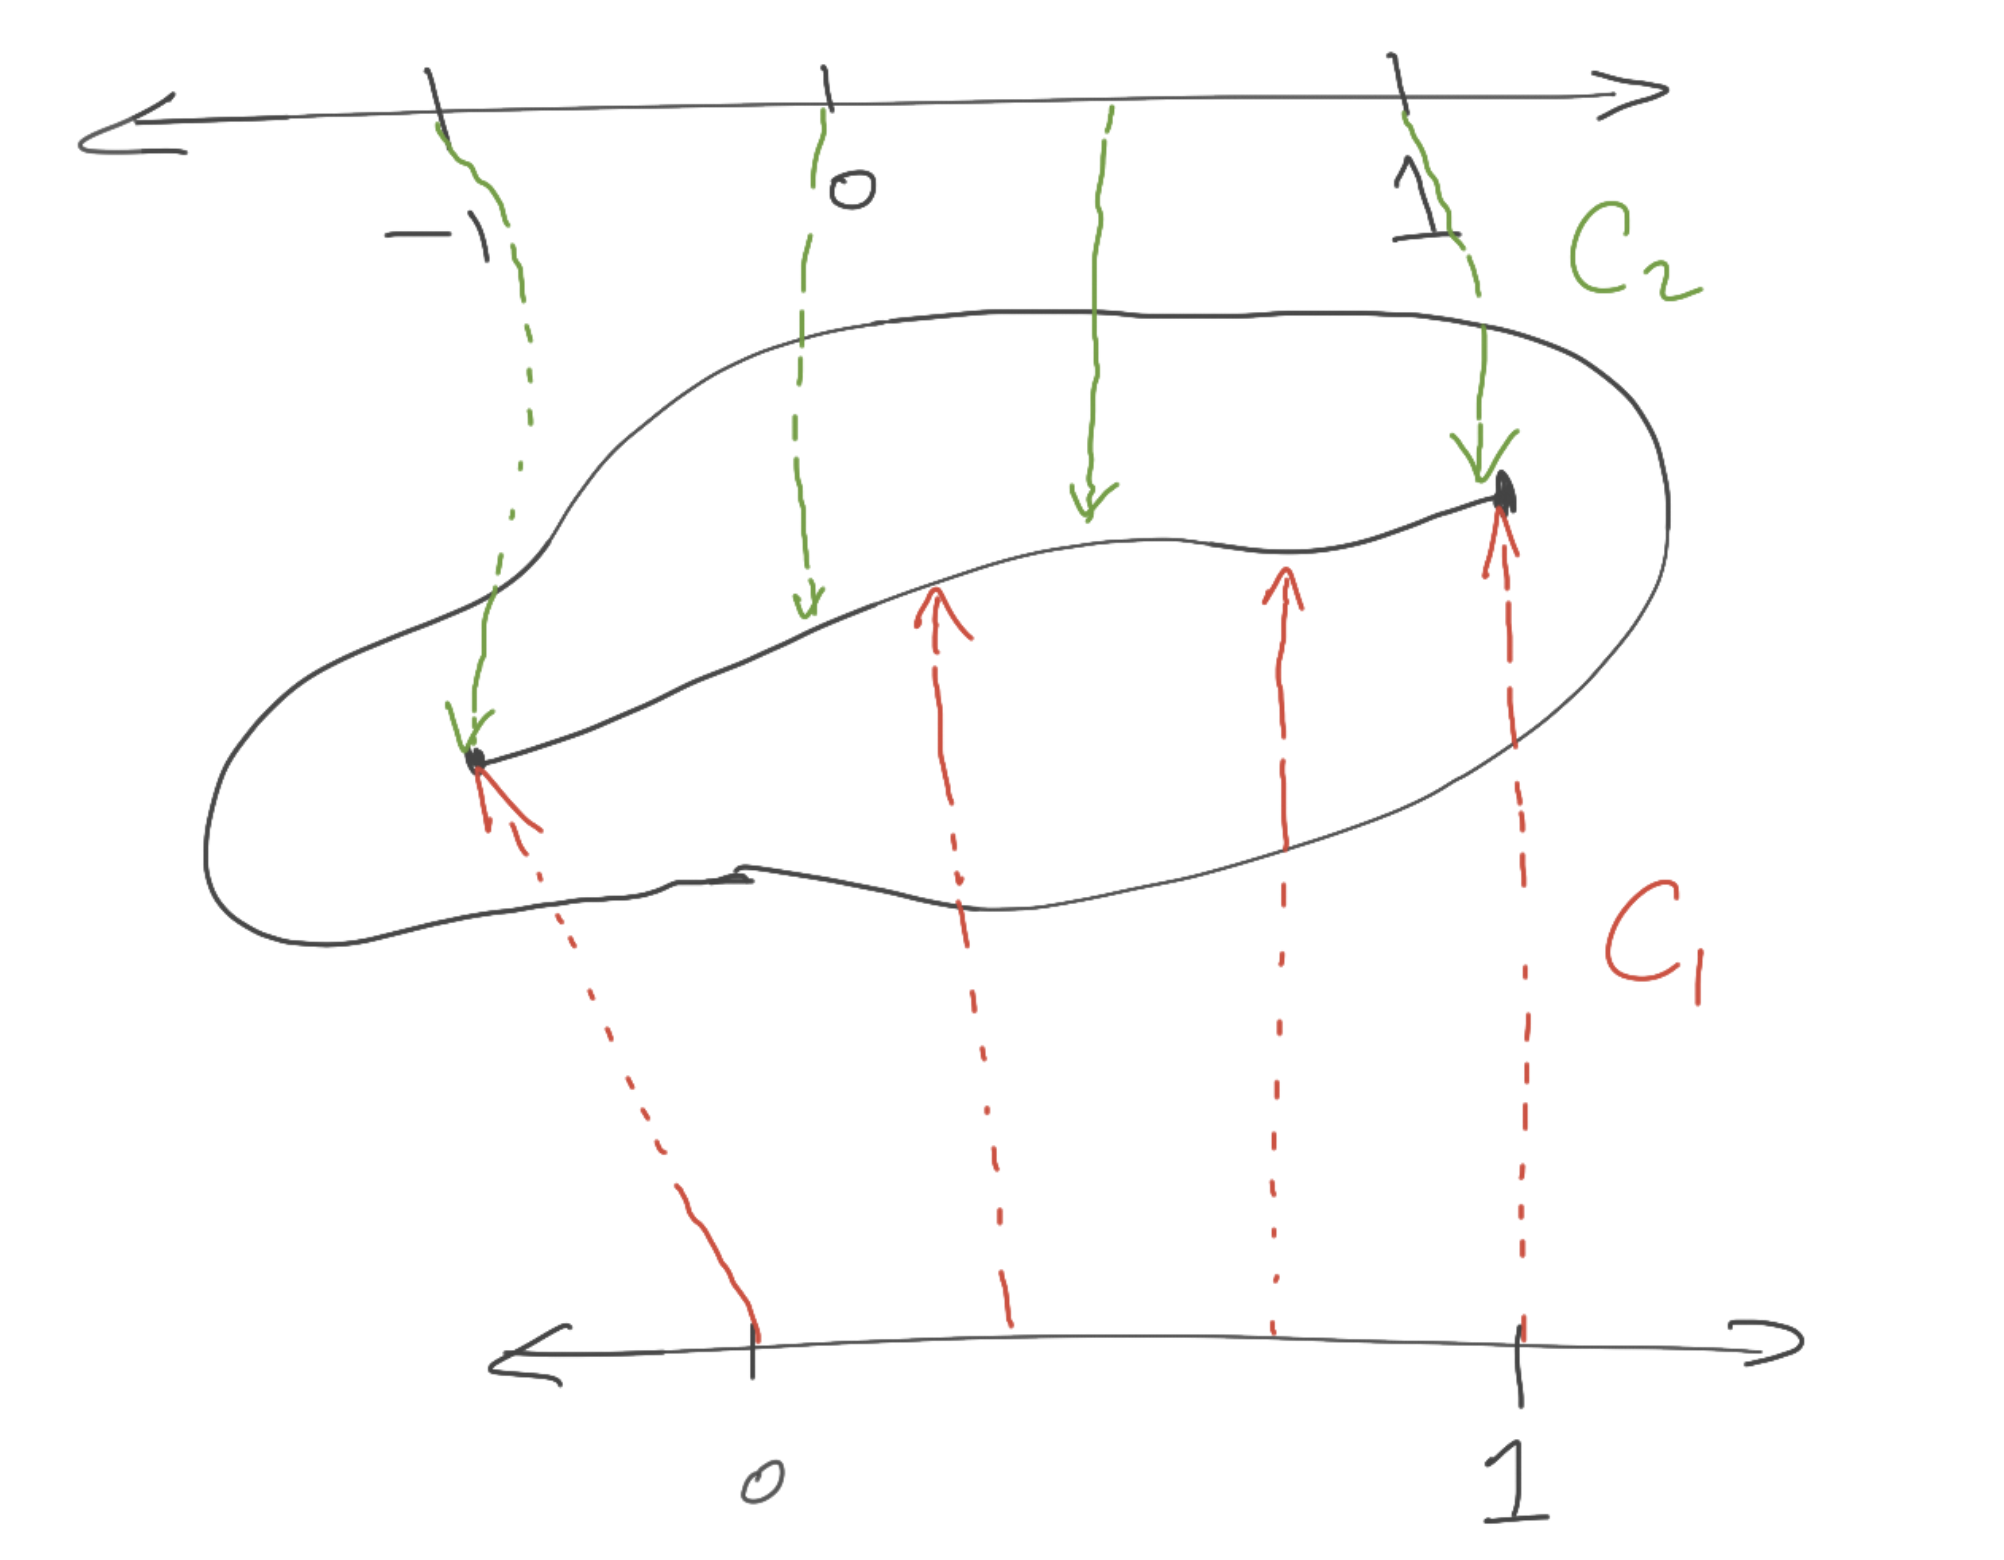 -1 0 1
C₂
C₁
0 1